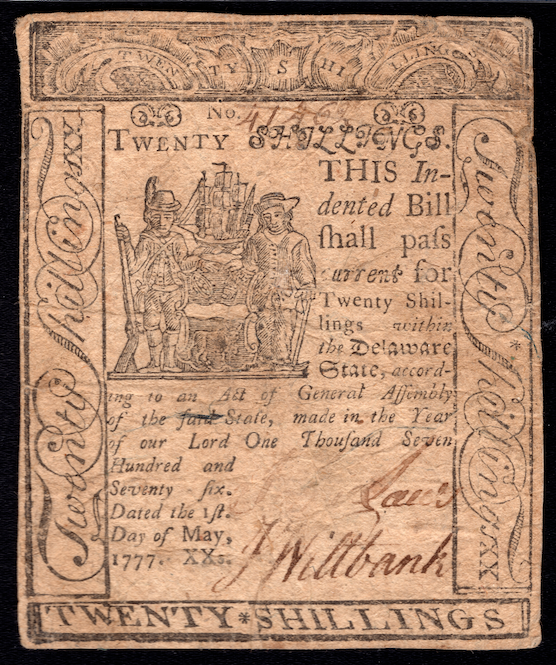 TWENTY SHILLINGS
No. 41462
TWENTY SHILLINGS.
THIS In-
dented Bill
ſhall paſs
current for
Twenty Shil-
lings within
the Delaware
State, accord-
ing to an Act of General Aſſembly
of the ſaid State, made in the Year
of our Lord One Thouſand Seven
Hundred and
Seventy ſix.
Dated the 1ſt.
Day of May,
1777. XXs.
J Wiltbank
Twenty Shillings XX
Twenty * Shillings XX
TWENTY*SHILLINGS